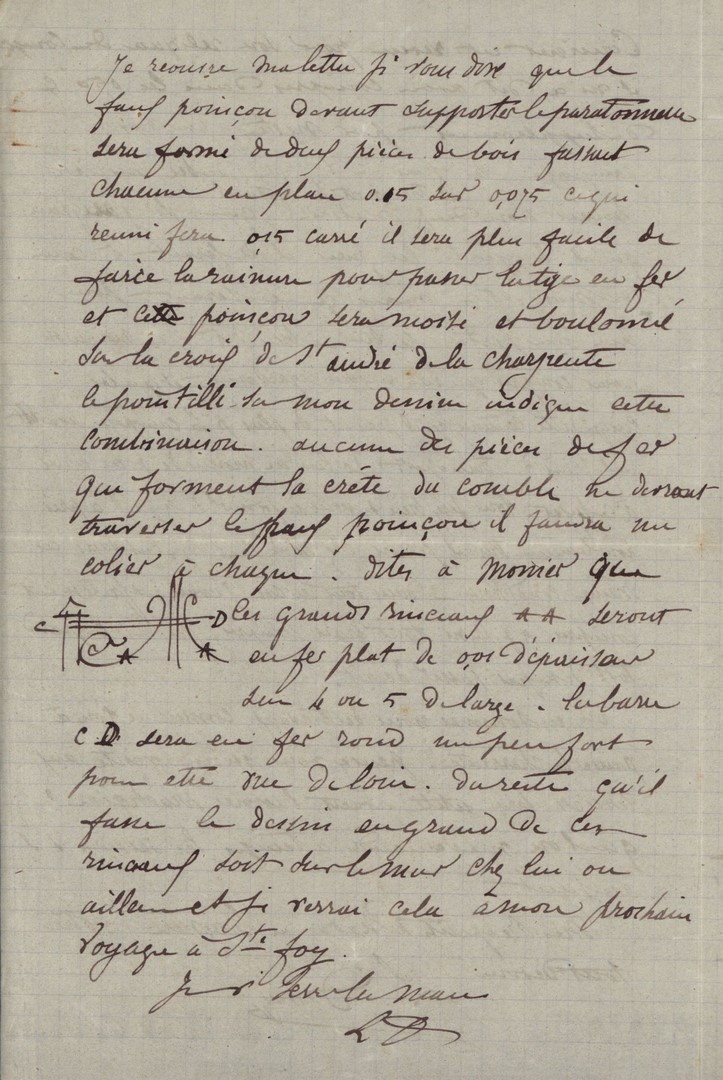 Je reouvre ma lettre ji vous dire que le
faux poinçon devant supporter le paratonnerre
sera formé de deux pièces de bois faisant
chacune en plan 0.15 sur 0,075 ce qui
reuni fera 015 carré il sera plus facile de
faire la rainure pour passer la tige en fer
et cette poinçon sera moisé et boulonné
sur la croix de St andré de la charpente
le pointillé sur mon dessin indique cette
combinaison. aucune des pièces de fer
qui forment la crête du comble ne devront
traverser le faux poinçon il faudra un
colier à chaque. dites à Monier que
les grands rinceaux A A seront
en fer plat de 001 d'épaisseur
sur 4 ou 5 de large. la barre
C D sera en fer rond un peu fort
pour etre vue de loin. du reste qu'il
fasse le dessin en grand de ces
rinceaux soit sur le mur chez lui ou
ailleurs et je verrai cela à mon prochain
voyage à Ste foy.
Je serre la main
C D
A A